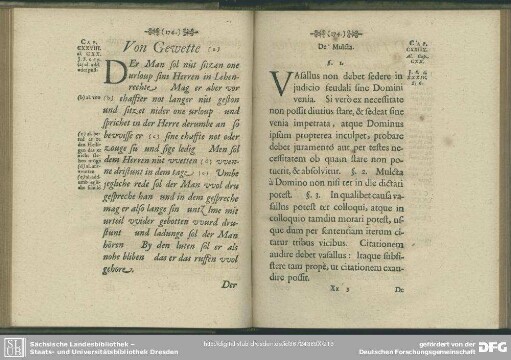 (174.)
CAP. CXXVIII. al. CXX.
Von Gewette (a)
DEr Man sol nüt sitzen one
urloup sins Herren in Lehen-
rechte. Mag er aber vor
(b) chaffter not langer nüt geston
und sitzet nider one urloup und
sprichet in der Herre derumbe an so
bewisse er (c) sine chafte not oder
zouge sü und sige ledig Men sol
dem Herren nüt wetten (d) wen-
ne drüstunt in dem tage (e) Umbe
jegliche rede sol der Man wol dru
gespreche han und in dem gespreche
mag er also lange sin untz ime mit
urteil wider gebotten wurd dru-
stunt und ladunge sol der Man
hören By den luten sol er als
nohe bliben das er das ruffen wol
gehöre
Der
De Mulcta.
CAP. CXXIIX. al. CXX.
§. 1.
VAsallus non debet sedere in
judicio feudali sine Domini
venia. Si verò ex necessitate
non possit diutius stare, & sedeat sine
venia impetrata, atque Dominus
ipsum propterea inculpet, probare
debet juramento aut per testes ne-
cessitatem ob quam stare non po-
tuerit, & absolvitur. §. 2. Mulcta
à Domino non nisi ter in die dictari
potest. §. 3. In qualibet causa va-
sallus potest ter colloqui, atque in
colloquio tamdiu morari potest, us-
que dum per sententiam iterum ci-
tatur tribus vicibus. Citationem
audire debet vasallus: Itaque subsi-
stere tam propè, ut citationem exau-
dire possit.
Xx 3
De
Sächsische Landesbibliothek –
Staats- und Universitätsbibliothek Dresden
gefördert von der
Deutschen Forschungsgemeinschaft
DFG